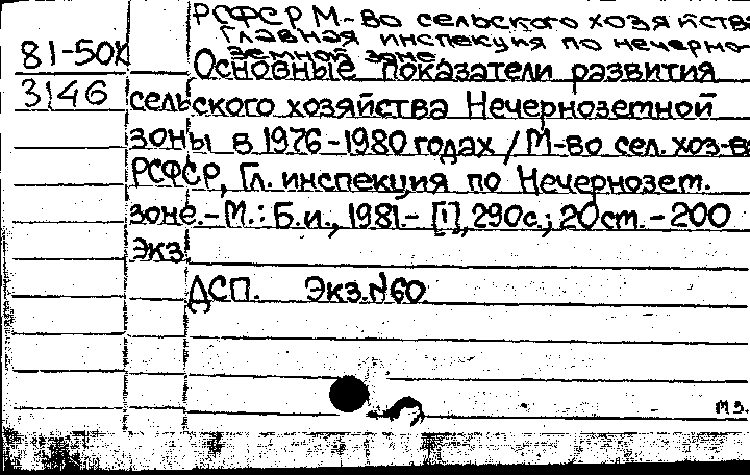 РСФСР М-во сельского хозяйства
Главная инспекция по нечерно-
земной зоне.
81-50К
3146
Основные показатели развития
сельского хозяйства Нечерноземной
зоны в 1976-1980 годах / М-во сел. хоз-ва
РСФСР, Гл. инспекция по Нечернозем.
зоне.-М.: Б.и., 1981.- [1], 290с.; 20см. - 200
экз.
ДСП. Экз.№60
МЗ.